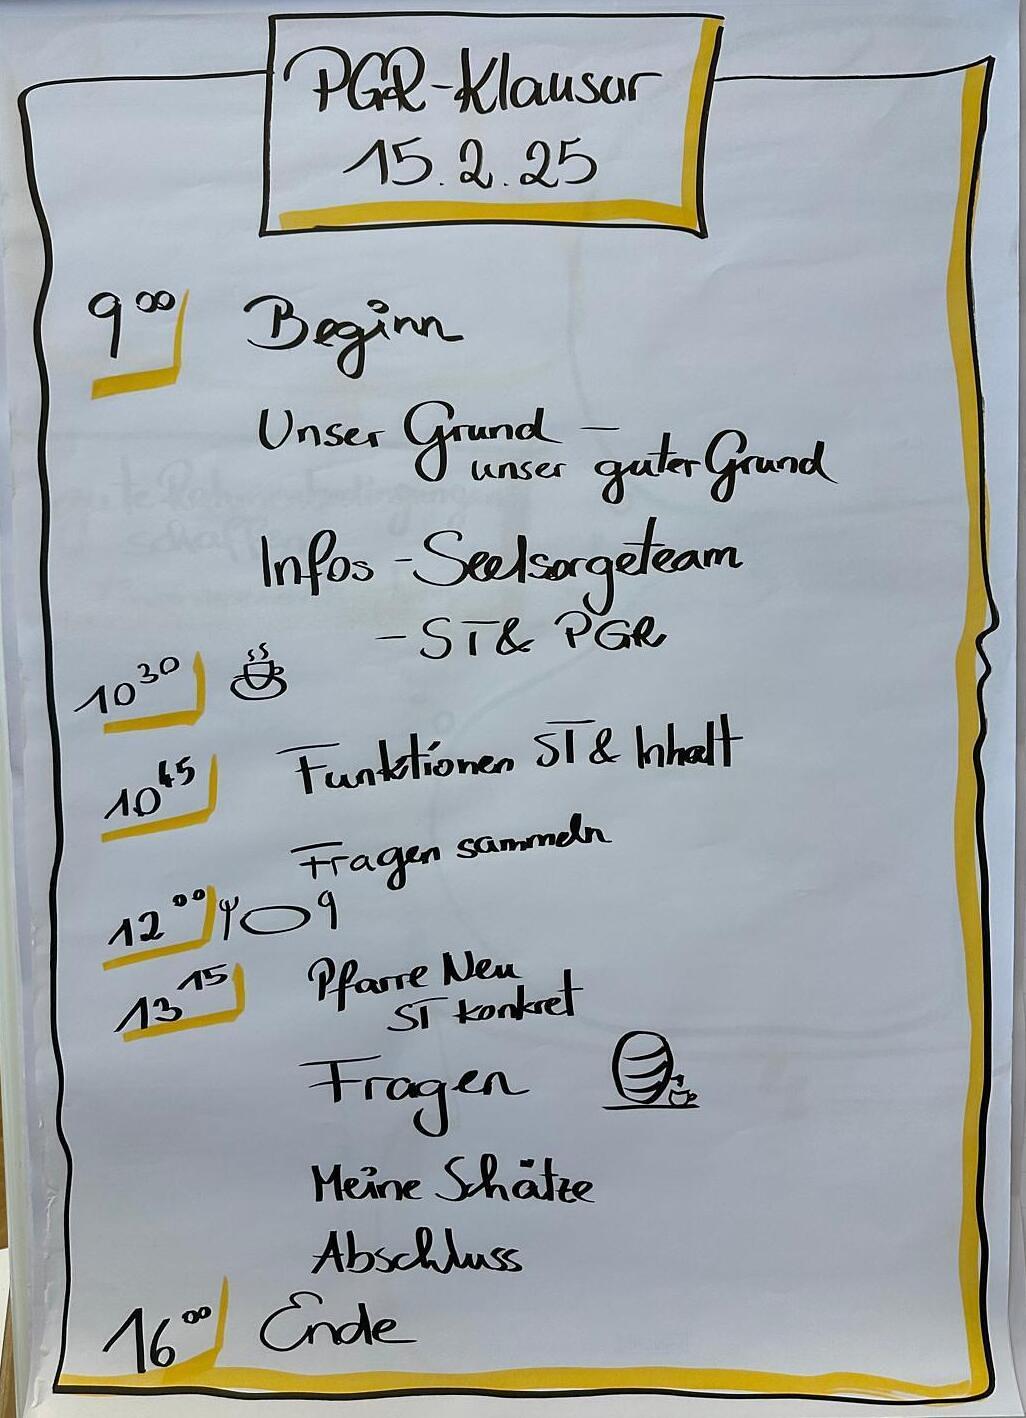 PGR-Klausur
15.2.25
9 00 Beginn
Unser Grund –
unser guter Grund
Infos - Seelsorgeteam
- ST & PGR
10 30
10 45 Funktionen ST & Inhalt
Fragen sammeln
12 00
13 15 Pfarre Neu
ST konkret
Fragen
Meine Schätze
Abschluss
16 00 Ende